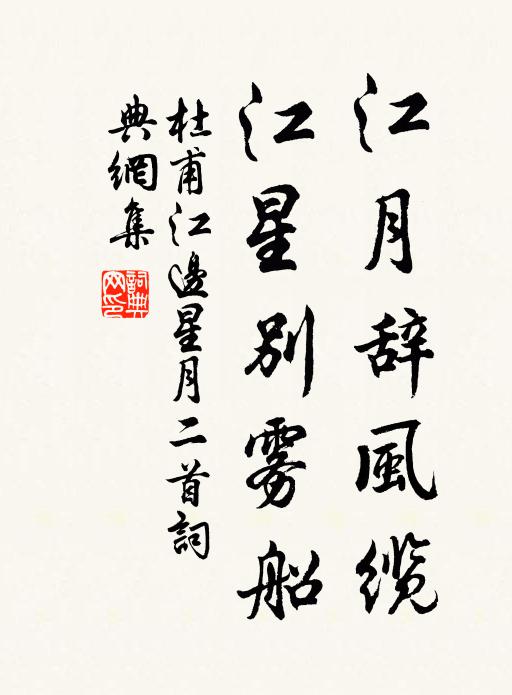 江月辞風缆
江星別雾船
杜甫江邊星月二首詞
典網集
詞典网印